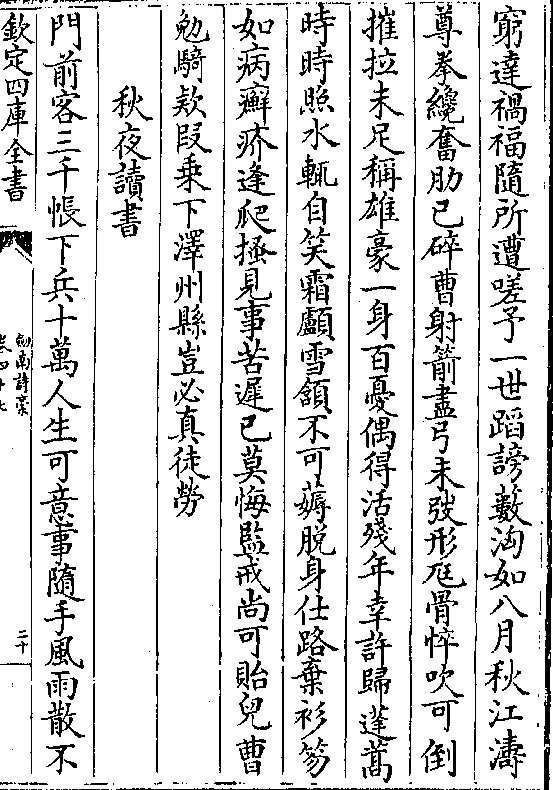 窮達禍福隨所遭嗟予一世蹈謗藪洶如八月秋江濤
尊拳纔奮肋已碎曹射箭盡弓未弢形尫骨悴吹可倒
摧拉未足稱雄豪一身百憂偶得活殘年幸許歸蓬蒿
時時照水輒自笑霜顱雪頷不可薅脫身仕路棄衫笏
如病癬疥逢爬搔見事苦遲已莫悔監戒尚可貽兒曹
勉騎款段乗下澤州縣豈必真徒勞
秋夜讀書
門前客三千帳下兵十萬人生可意事隨手風雨散不
欽定四庫全書
劍南詩槀
卷四十七
二十